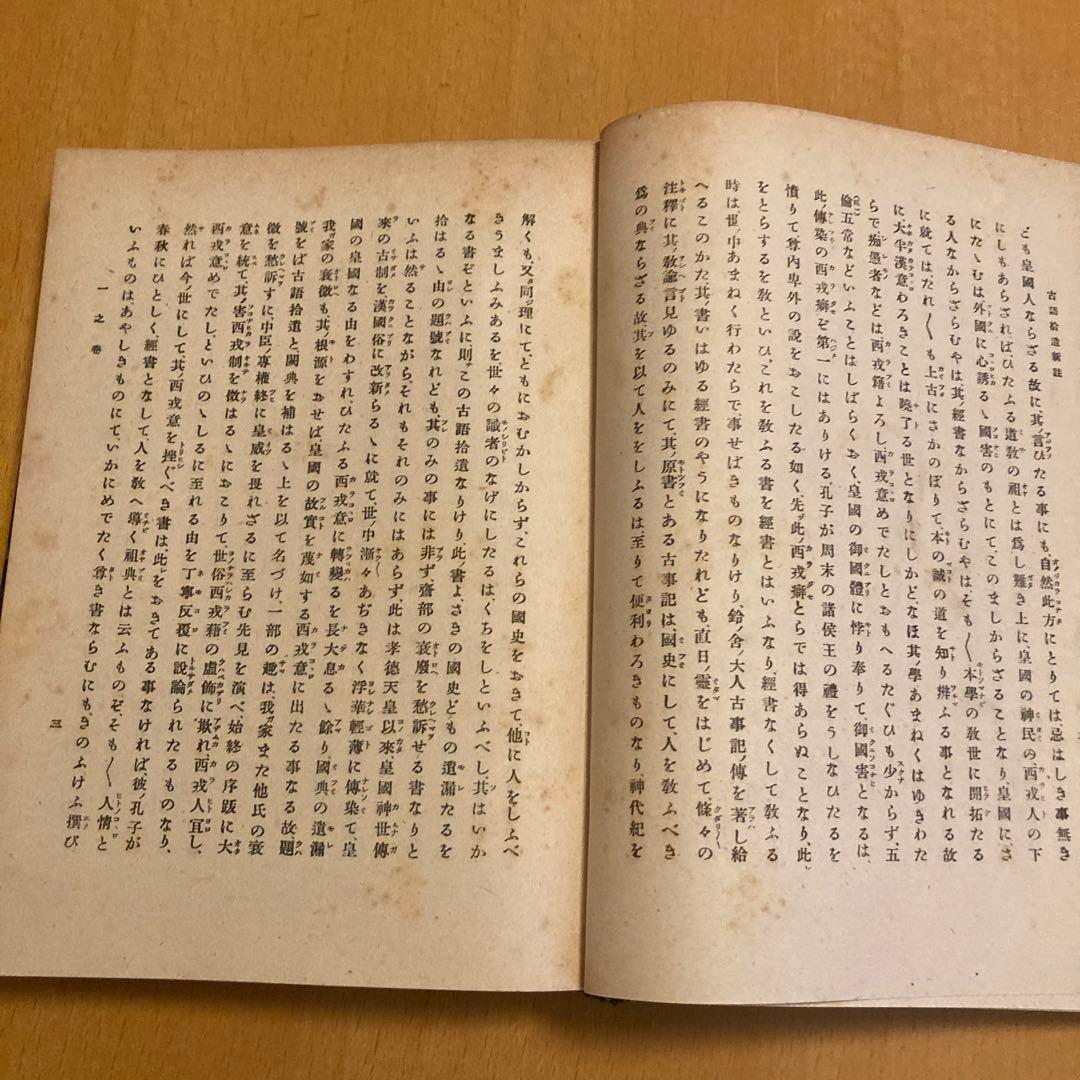 古語拾遺新註
とも皇國人ならざる故に其ノ言ひたる事にも、自然此方にとりては、忌はしき事無き
にしもあらざれば、ひたふる道敎の祖とは爲し難き上に、皇國の神民の西戎人の下
にたゝむは外國に心誘るゝ國害のもとにて、このましからざることなり、皇國に、さ
る人なからざらむやは其ノ經書なからざらむやは、そも〱本學の敎世に開拓たる
に就ては、たれ〱も上古にさかのぼりて、本の誠の道を知り辨ふる事となれる故
に、大牢漢意わろきことは曉了る世となりにしかどなほ其ノ學あまねくはゆきわた
らで痴愚者などは西戎籍よろし西戎意めでたしとおもへるたぐひも少からず、五
倫五常などいふことはしばらくおく、皇國の御國體に悖り奉りて御國害となるは、
此ノ傳染の西戎癖ぞ第一にはありける、孔子が周末の諸侯王の禮をうしなひたるを
憤りて、尊内卑外の說をおこしたる如く、先ヅ此ノ西戎癖とらでは得あらぬことなり、此レ
をとらするを敎といひ、これを敎ふる書を經書とはいふなり、經書なくして敎ふる
時は世ノ中あまねく行わたらで事せばきものなりけり、鈴ノ舍ノ大人古事記ノ傳を著し給
へるこのかた其ノ書いはゆる經書のやうになりたれども、直日ノ靈をはじめて條々の
注釋に其ノ敎諭言見ゆるのみにて其ノ原書とある古事記は國史にして、人を敎ふべき
爲の典ならざる故其を以て人ををしふるは至りて便利わろきものなり神代紀を
解くも、又タ同ジ理にて、ともにおむかしからず、これらの國史をおきて、他に人をしふべ
きうましふみあるを世々の識者のなげにしたるは、くちをしといふべし、其はいか
なる書ぞといふに則チこの古語拾遺なりけり、此ノ書よ、さきの國史どもの遺漏たるを
拾はるゝ由の題號なれども、其のみの事には非ず、齋部の衰廢を愁訴せる書なりと
いふは然ることながら、それもそれのみにはあらず、此は孝德天皇以來、皇國神世傳
來の古制を漢國俗に改新らるゝに就て、世ノ中漸々あぢきなく浮華輕薄に傳染て、皇
國の皇國なる由をわすれひたふる西戎意に轉變るを長大息るゝ餘り國典の遺漏
我ガ家の衰微も其ノ根源をおせば、皇國の故實を蔑如する西戎意に出たる事なる故題
號をば古語拾遺と闕典を補はるゝ上を以て名づけ一部の趣は、我ガ家また他氏の衰
微を愁訴すに、中臣ノ專權終に皇威を畏れざるに至らむ先見を演べ、始終の序跋に大
意を統て、其ノ害西戎制を傚はるゝにおこりて、世俗西戎藉の虛飾に欺れ、西戎人宜し、
西戎意めでたし、といひのゝしるに至れる由を丁寧反覆に說諭られたるものなり、
然れば今世にして、其ノ西戎意を挫ぐべき書は、此レをおきてある事なければ、彼ノ孔子が
春秋にひとしく、經書となして、人を敎へ導く祖典とは云ふものぞ、そも〱人情と
いふものは、あやしきものにて、いかにめでたく尊き書ならむにもきのふけふ撰び
一之卷
三